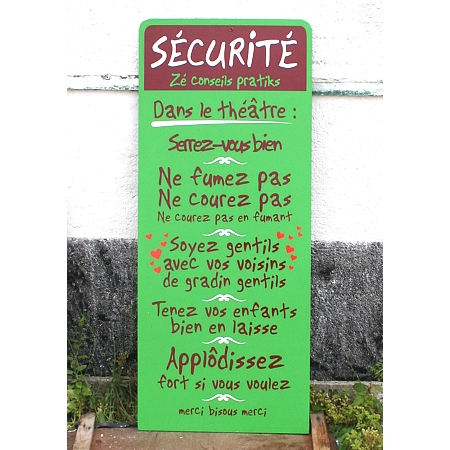 SÉCURITÉ
Zé conseils pratiks
Dans le théâtre :
Serrez-vous bien
Ne fumez pas
Ne courez pas
Ne courez pas en fumant
Soyez gentils
avec vos voisins
de gradin gentils
Tenez vos enfants
bien en laisse
Applôdissez
fort si vous voulez
merci bisous merci